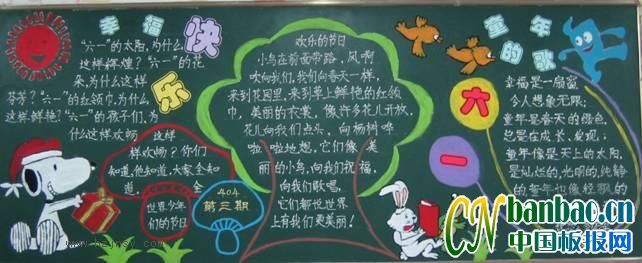 幸福
快
乐
"六一"的太阳,为什么
这样辉煌?"六一"的花
朵,为什么这样
芬芳?"六一"的红领巾,为什么,
这样鲜艳?"六一"的孩子们,为
什么这样欢畅
这样
样欢畅?你们
知道,他知道,大家全知
道,
全
世界少年
们的节日
404
第三期
欢乐的节日
小鸟在前面带路,风啊
吹向我们,我们向春天一样,
来到花园里,来到草上鲜艳的红领
巾,美丽的衣裳,像许多花儿开放,
花儿向我们点头,向杨树哗
啦啦地想,它们像美
丽的小鸟,向我们祝福,
向我们歌唱,
它们都说世界
上有我们更美丽!
童年
的歌
六
一
幸福是一扇蜜
令人想象无限;
童年是春天的绿色,
总是在成长、发现;
童年像是天上的太阳,
是灿烂的,光明的,纯静
的
童年也像轻飘的
CNbanbao.cn
中国板报网